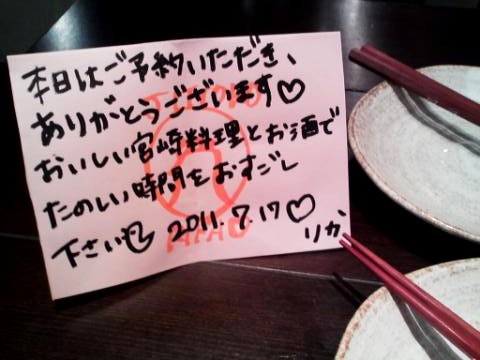 本日はご予約いただき、
ありがとうございます♡
おいしい宮崎料理とお酒で
たのしい時間をおすごし
下さい 2011.7.17♡
りか